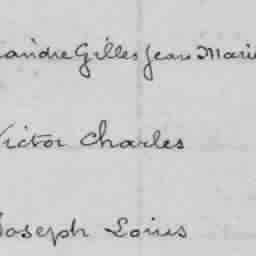 andre Gilles Jean Marie
Victor Charles
Joseph Louis